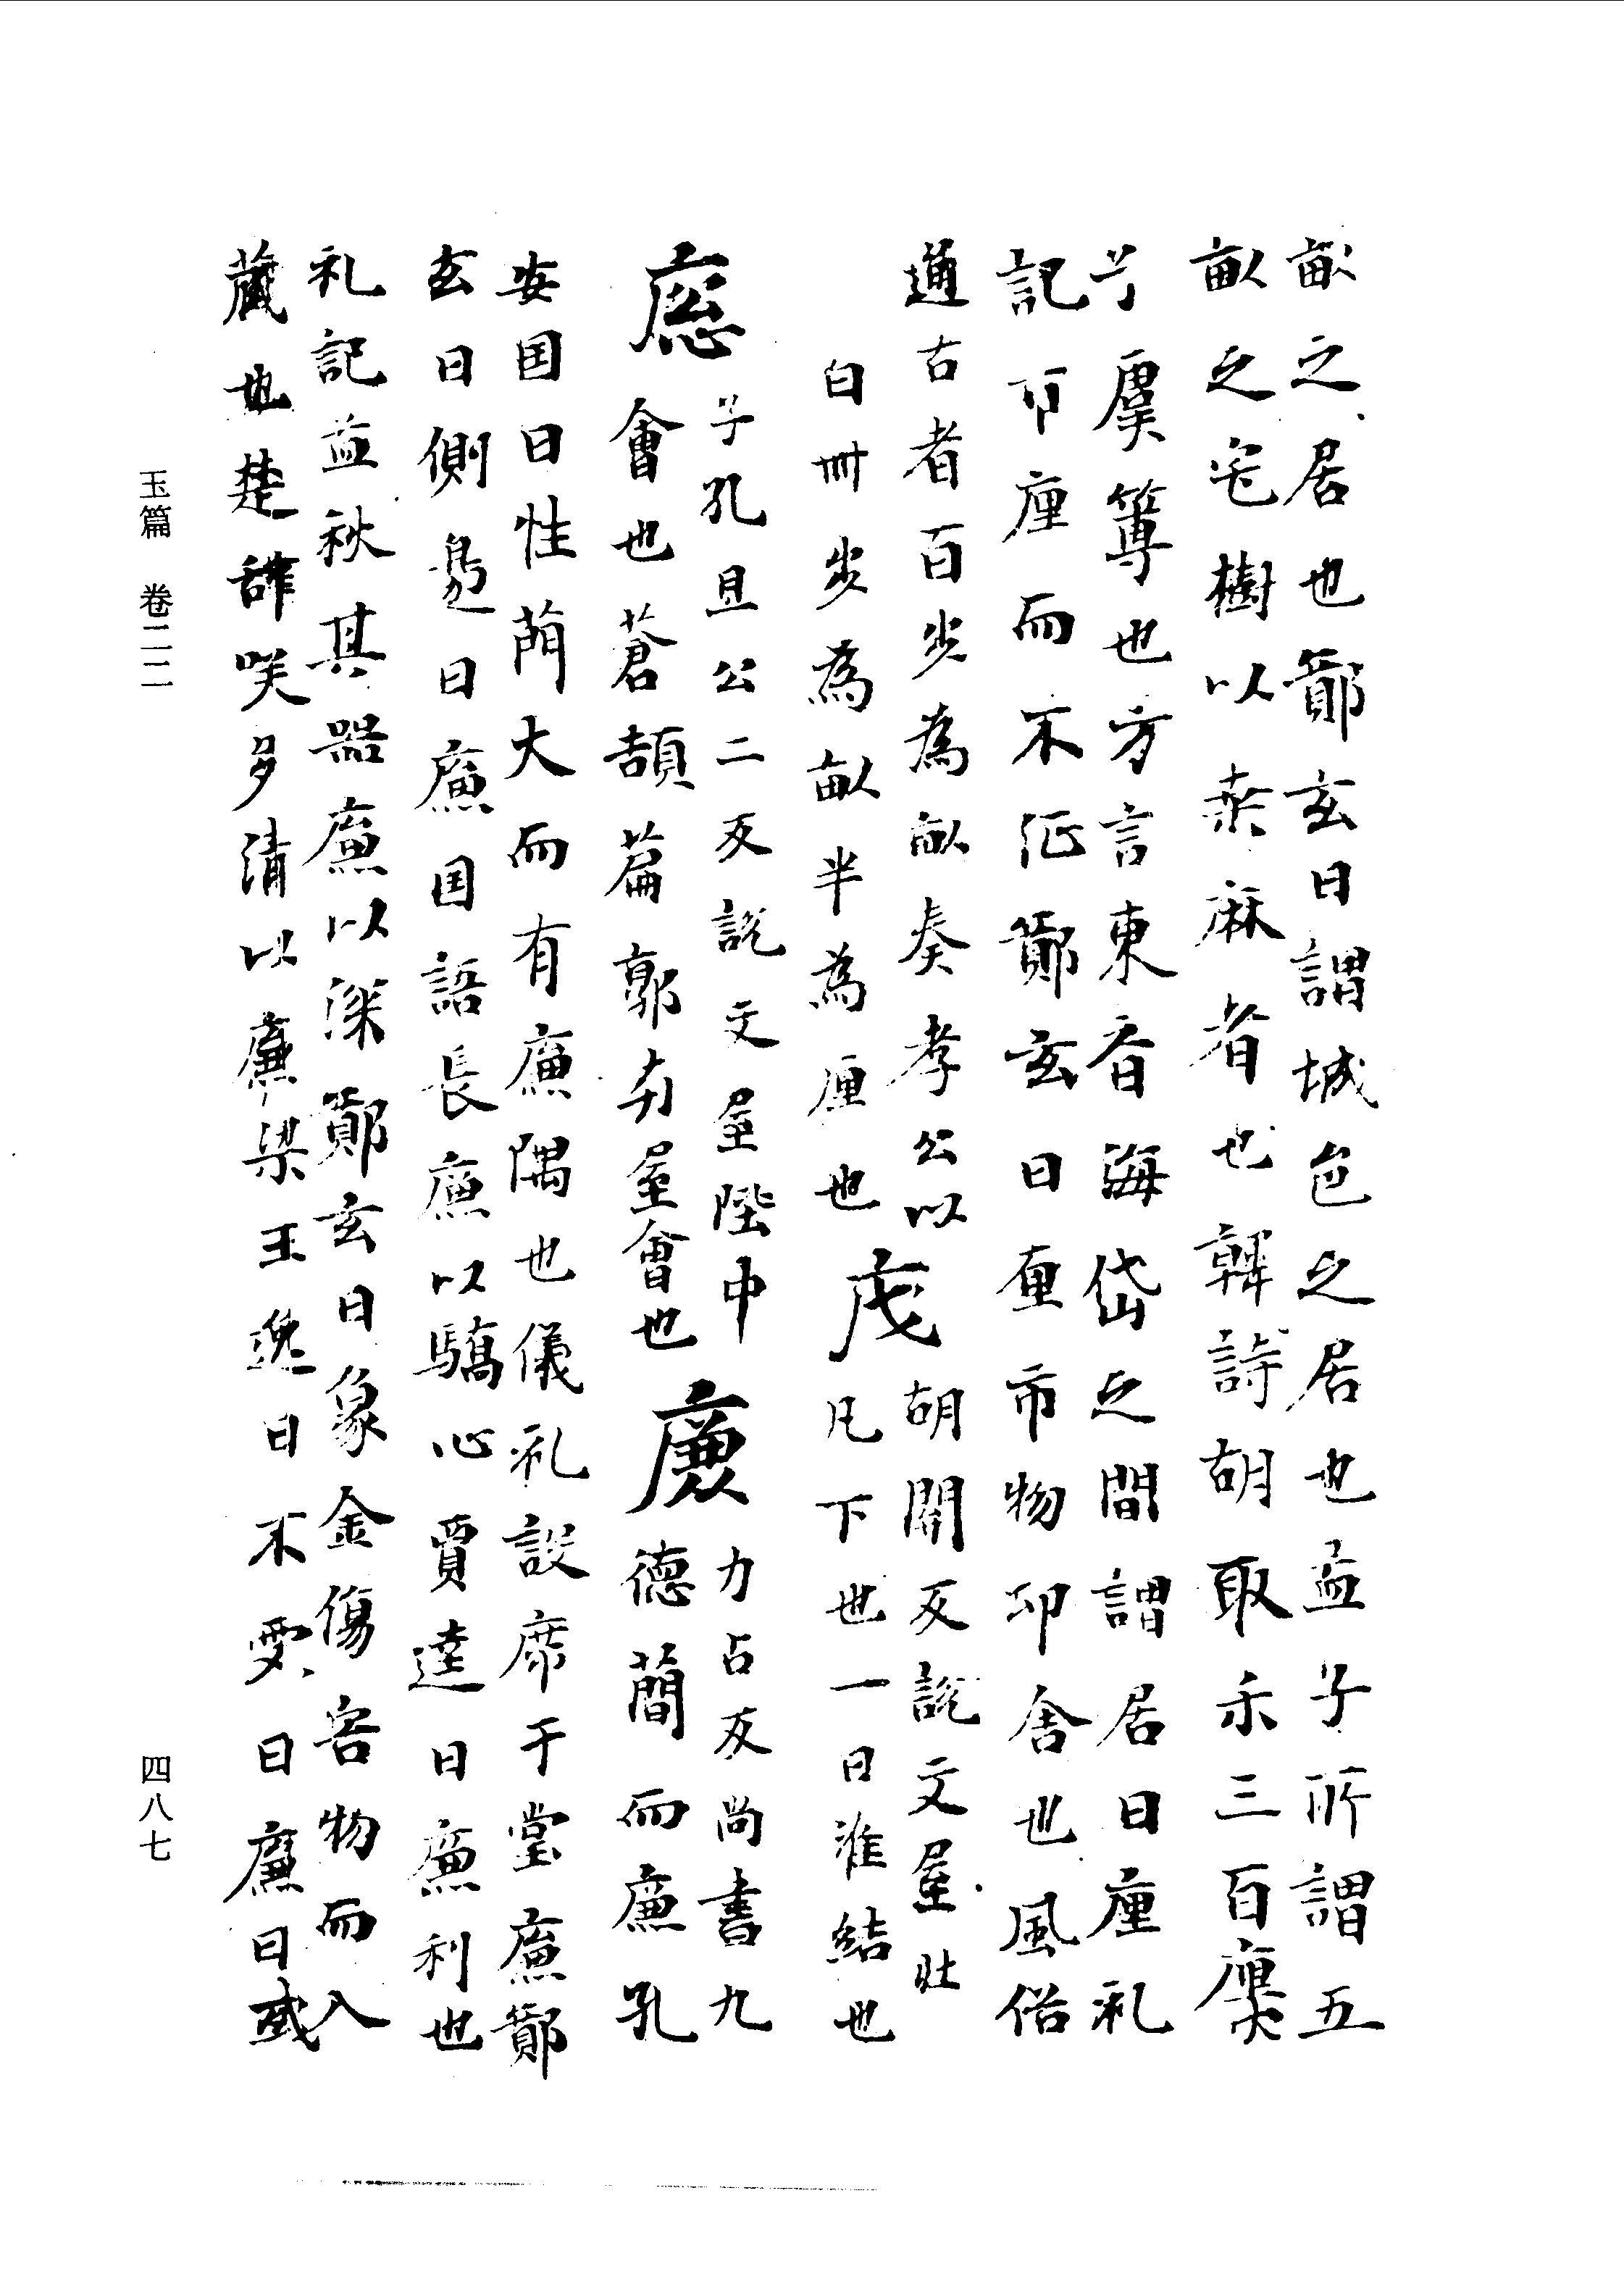 畝之居也鄭玄曰謂城邑之居也孟子所謂五
畝之宅樹以桒麻者也韓詩胡取禾三百廛
兮廛篿也方言東齊海岱之間謂居曰廛礼
記市廛而不征鄭玄曰廛市物邸舍也風俗
通古者百步為畝秦孝公以
白卌步為畝半為廛也
戊
胡關反說文屋牡
凡下也一曰淮結也
廗
子孔且公二反說文屋陛中
會也蒼頡篇郭夯屋會也
廉
力占反尚書九
德簡而廉孔
安国曰性蕳大而有廉隅也儀礼設席于堂廉鄭
玄曰側邊曰廉国語長廉以驕心賈逵曰廉利也
礼記孟秋其器廉以深鄭玄曰象金傷害物而入
藏也楚辞咲多清以廉梁王逸曰不受曰廉曰或
玉篇 卷二二
四八七